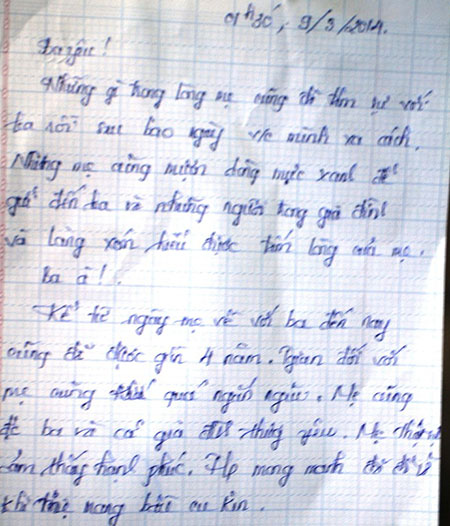 01h30', 9/3/2014.
Ba yêu!
Những gì trong lòng mẹ cũng đã tâm sự với
ba rồi sau bao ngày v/c mình xa cách.
Nhưng mẹ cũng mượn dòng mực xanh để
gửi đến ba và những người trong gia đình
và làng xóm hiểu được tấm lòng của mẹ.
Ba à!
Kể từ ngày mẹ về với ba đến nay
cũng đã được gần 4 năm. gian đối với
mẹ cũng quá ngắn ngủi. Mẹ cũng
đc ba và cả gia đình thương yêu. Mẹ
cảm thấy hạnh phúc. mong manh đã
khi mẹ mang bầu cu kin.